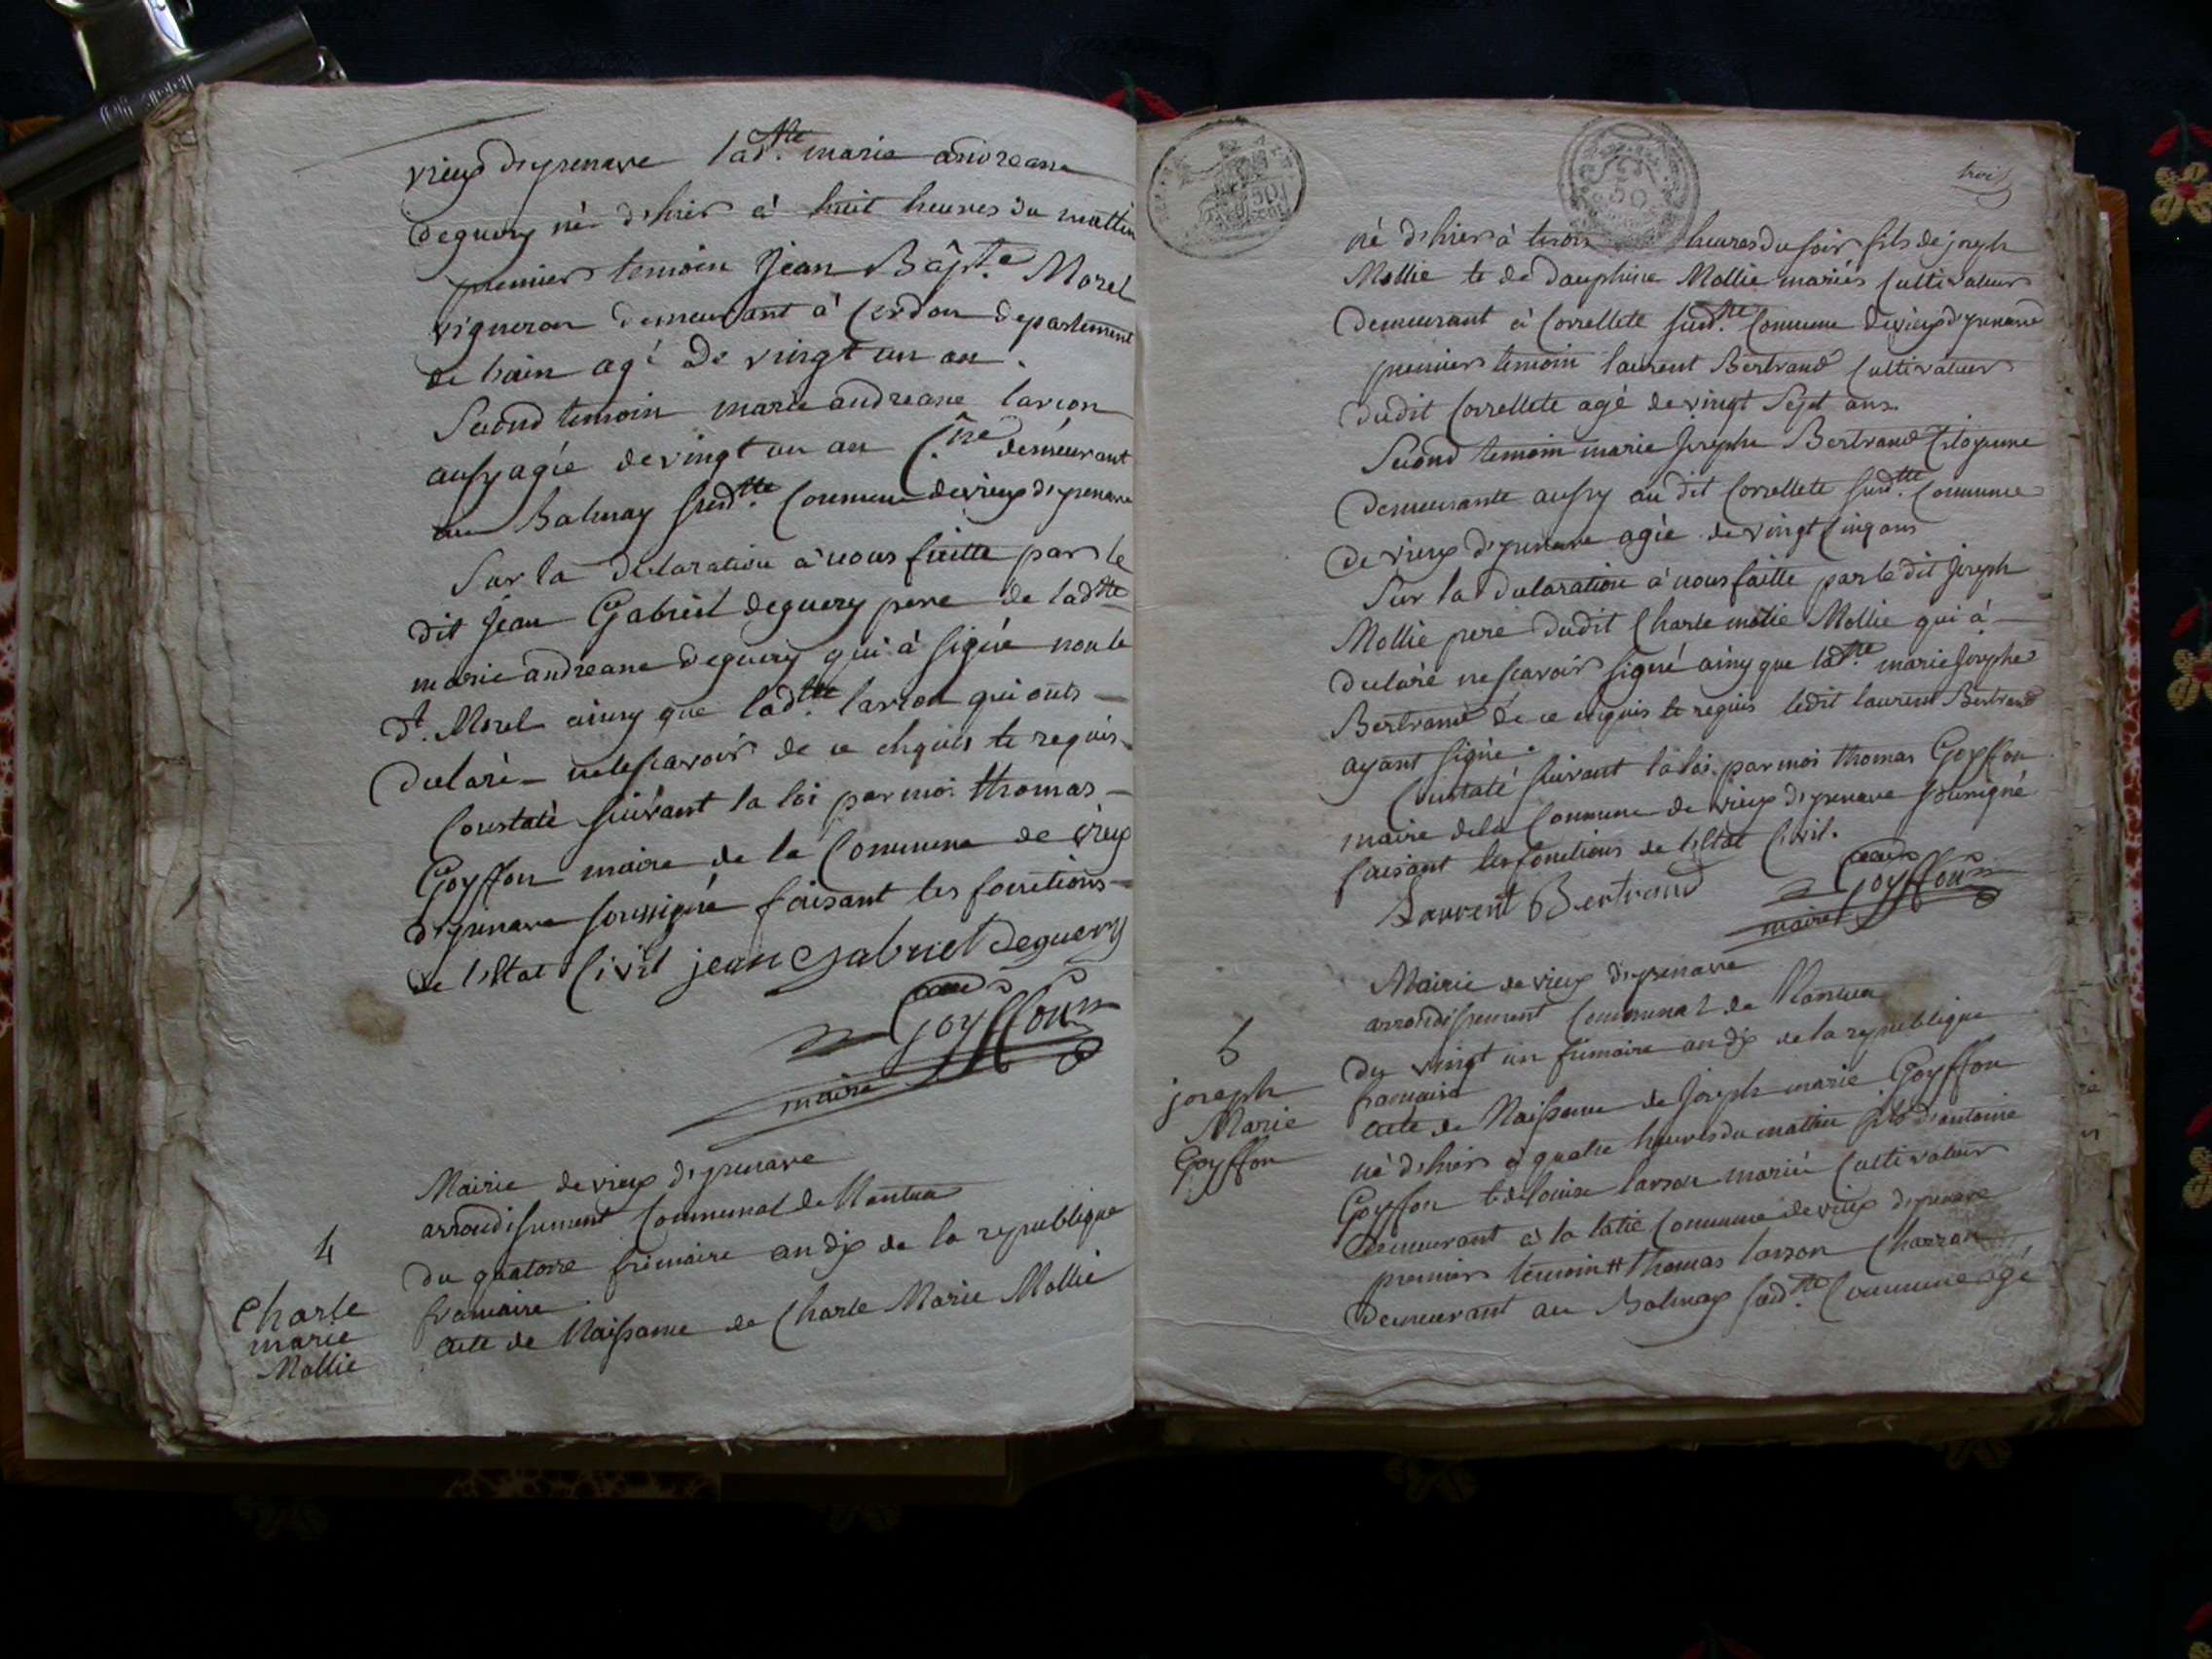 vieux d'yzenave lad.tte marie andreane
deguery né d'hier à huit heures du mattin
premier temoin Jean Bapt.e Morel
vigneron demeurant à Cerdon departement
de l'ain agé de vingt un an.
Second temoin marie andreane larson
aussy agée de vingt un an C.ne demeurant
au Balmay susd.tte Commune de vieux d'yzenave
Sur la declaration à nous faitte par le
dit Jean Gabriel deguery pere de ladtte
marie andreane deguery qui à signé non le
dt. Morel ainsy que lad.tte larson qui onts
declaré ne le scavoir de ce enquis et requis
Constaté suivant la loi par moi thomas
Goyffon maire de la Commune de vieux
d'yzenave soussigné faisant les fonctions
de l'estat Civil jean gabriel deguery
Goyffon
maire
Mairie de vieux d'yzenave
arrondissement Communal de Nantua
4
du quatorze frimaire an dix de la republique
francaise
Charle
marie
Mollie
acte de Naissance de Charle Marie Mollie
trois
né d'hier à trois heures du soir fils de joseph
Mollie et de dauphine Mollie mariés Cultivateur
demeurant à Correllete susd.tte Commune de vieux d'yzenave
premier temoin laurent Bertrand Cultivateur
dudit Correllete agé de vingt Sept ans
Second temoin marie Josephe Bertrand Citoyenne
demeurante aussy au dit Correllete susd.tte Commune
de vieux d'yzenave agée de vingt Cinq ans
Sur la declaration à nous faitte par le dit Joseph
Mollie pere dudit Charle Mollie qui à
declaré ne scavoir signé ainsy que ladtte marie Josephe
Bertrand de ce enquis et requis ledit laurent Bertrand
ayant signé.
Constaté suivant la loi par moi thomas Goyffon
maire de la Commune de vieux d'yzenave soussigné
faisant les fonctions de l'estat Civil.
Laurent Bertrand
Goyffon
maire
Mairie de vieux d'yzenave
arrondissement Communal de Nantua
5
du vingt un frimaire an dix de la republique
francaise
joseph
Marie
Goyffon
acte de Naissance de Joseph marie Goyffon
né d'hier à quatre heures du mattin fils d'antoine
Goyffon et de louise larson mariés Cultivateur
demeurant à la latie Commune de vieux d'yzenave
premier temoin thomas larson Charron
demeurant au Balmay susd.tte Commune agé